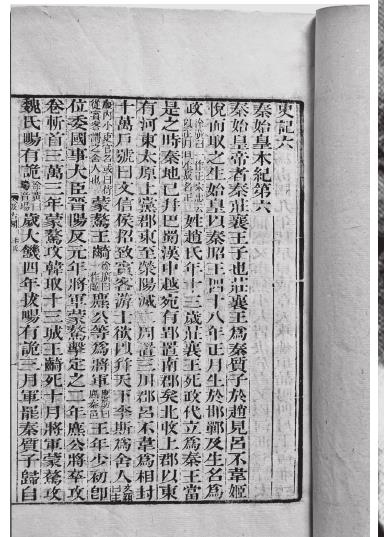 史記六
秦始皇本紀第六
秦始皇帝者秦莊襄王子也莊襄王爲秦質子於趙見呂不韋姬
悅而取之生始皇以秦昭王四十八年正月生於邯鄲及生名爲
政姓趙氏年十三歲莊襄王死政代立爲秦王當
是之時秦地已幷巴蜀漢中越宛有郢置南郡矣北收上郡以東
有河東太原上黨郡東至滎陽滅二周置三川郡呂不韋爲相封
十萬戶號曰文信侯招致賓客游士欲以幷天下李斯爲舍人
蒙驁王齮麃公等爲將軍王年少初即
位委國事大臣晉陽反元年將軍蒙驁擊定之二年麃公將卒攻
卷斬首三萬三年蒙驁攻韓取十三城王齮死十月將軍蒙驁攻
魏氏暘有詭歲大饑四年拔暘有詭三月軍罷秦質子歸自